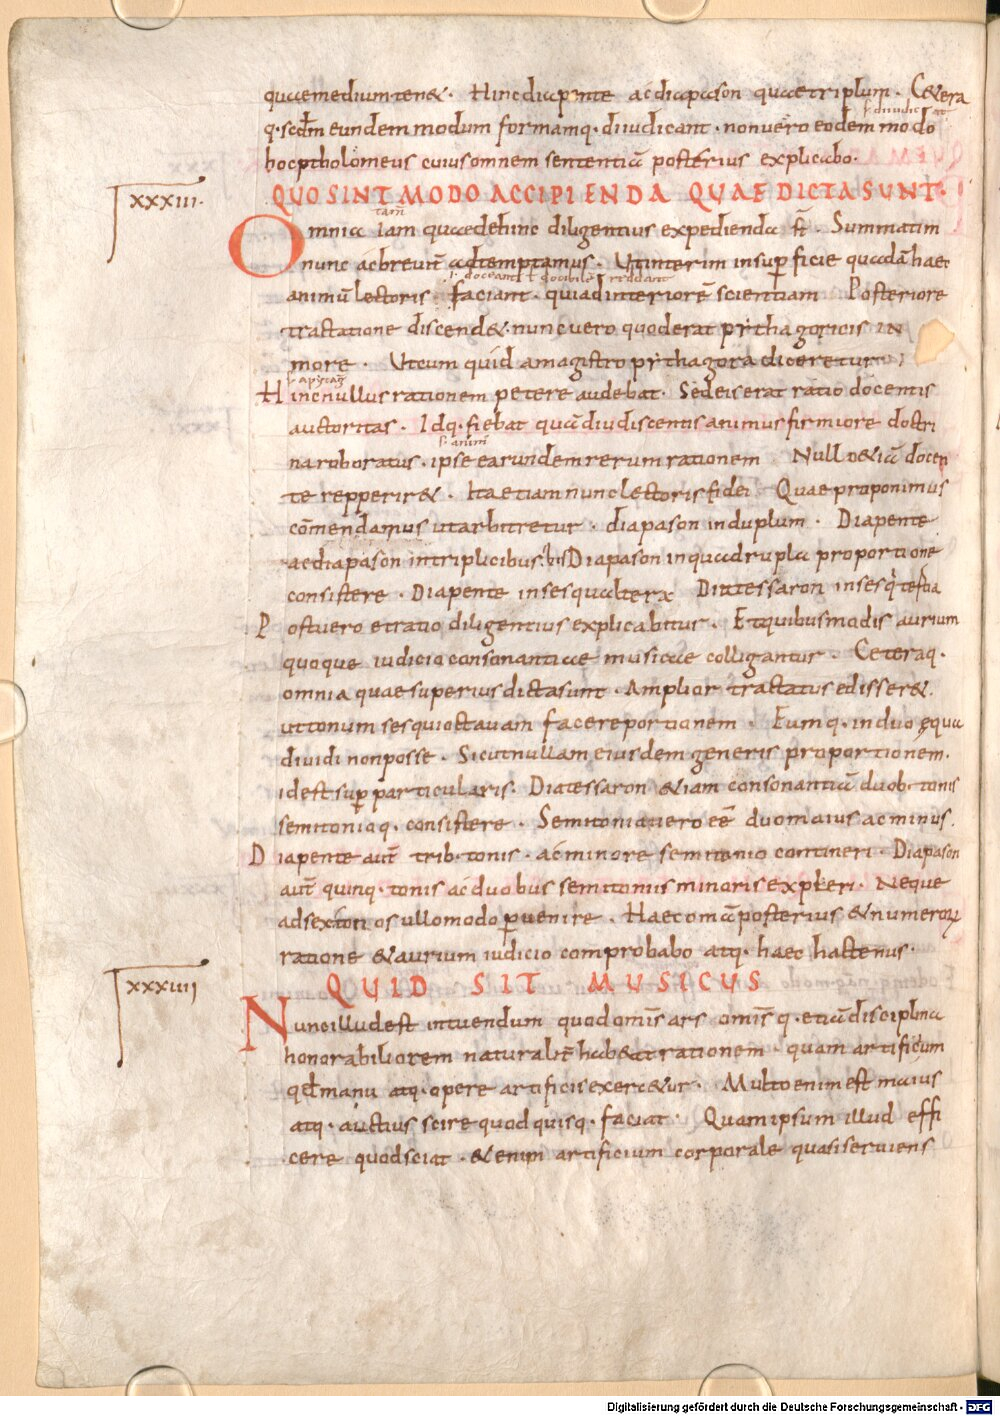 quae medium tenet. Hinc diapente ac diapason quae triplum. Cetera
s. diiudicat
q. scdm eundem modum formamq. diiudicant. non vero eodem modo
hoc ptholomeus cuius omnem sententiã posterius explicabo.
XXXIII.
QUO SINT MODO ACCIPIENDA QUAE DICTA SUNT.
tam̃
Omnia iam quae dehinc diligentius expedienda st̃. Summatim
nunc ac brevit̃ adtemptamus. Ut interim in sup̱ficie quadã haec
s. doceant ł docibiles reddant
animũ lectoris faciant. qui ad interiorẽ scientiam Posteriore
tractatione discendet. nunc vero quod erat pythagoricis in
more. Ut cum quid a magistro pythagora diceretur
Hinc nullus rationem petere audebat. Sed eis erat ratio docentis
auctoritas. Idq. fiebat quãdiu discentis animus firmiore doctri
s. anim̃
na roboratus. ipse earundem rerum rationem Nullo etiã docen
te repperiret. Ita etiam nunc lectoris fidei Quae proponimus
cõmendamus ut arbitretur. diapason in duplum. Diapente
ac diapason in triplicibus. bis Diapason in quadrupla proportione
consistere. Diapente in sesqualtera Diatessaron in sesq̇tertia
Post vero et ratio diligentius explicabitur. Et quibus modis aurium
quoque iudicio consonantiae musicae colligantur. Ceteraq.
omnia quae superius dicta sunt. Amplior tractatus edisseret.
ut tonum sesquioctavam facere portionem. Eumq. in duo equa
dividi non posse. Sicut nullam eiusdem generis proportionem.
id est sup̱particularis. Diatessaron etiam consonantiã duob. tonis
semitonioq. consistere. Semitonia vero eẽ duo maius ac minus.
Diapente aut̃ trib. tonis. ac minore semitonio contineri. Diapason
aut̃ quinq. tonis ac duobus semitoniis minoris expleri. Neque
ad sex tonos ullo modo p̱venire. Haec om̃a posterius et numeroꝝ
ratione et aurium iudicio comprobabo atq. haec hactenus.
XXXIIII
QUID SIT MUSICUS
Nunc illud est intuendum quod om̃is ars om̃isq. etiã disciplina
honorabiliorem naturalit̃ habeat rationem. quam artificium
qd̃ manu atq. opere artificis exercetur. Multo enim est maius
atq. auctius scire quod quisq. faciat. Quam ipsum illud effi
cere quod sciat. etenim artificium corporale quasi serviens
Digitalisierung gefördert durch die Deutsche Forschungsgemeinschaft - DFG